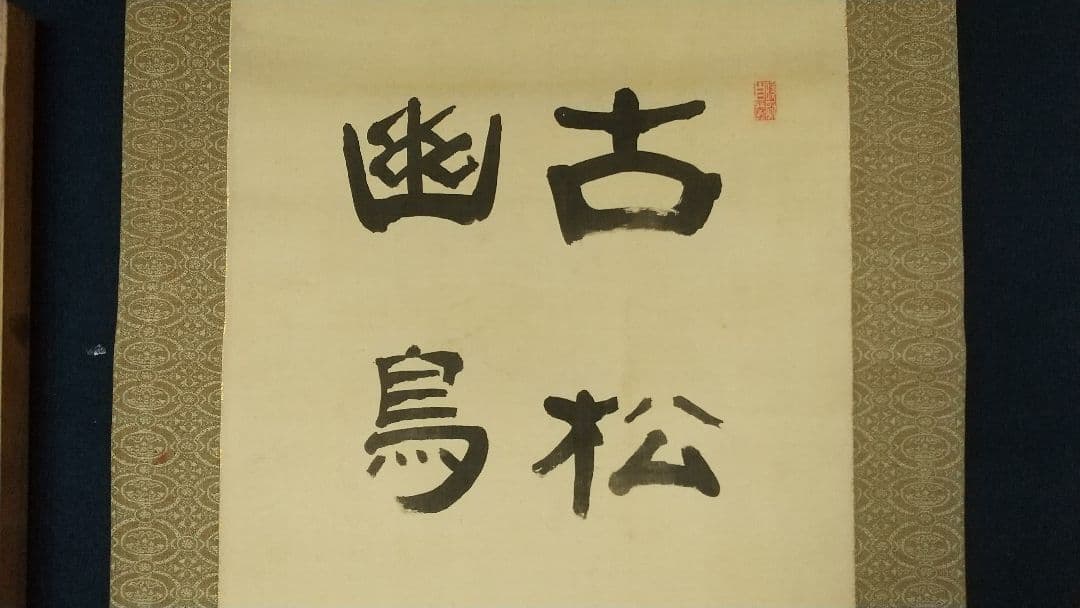 古松
幽鳥